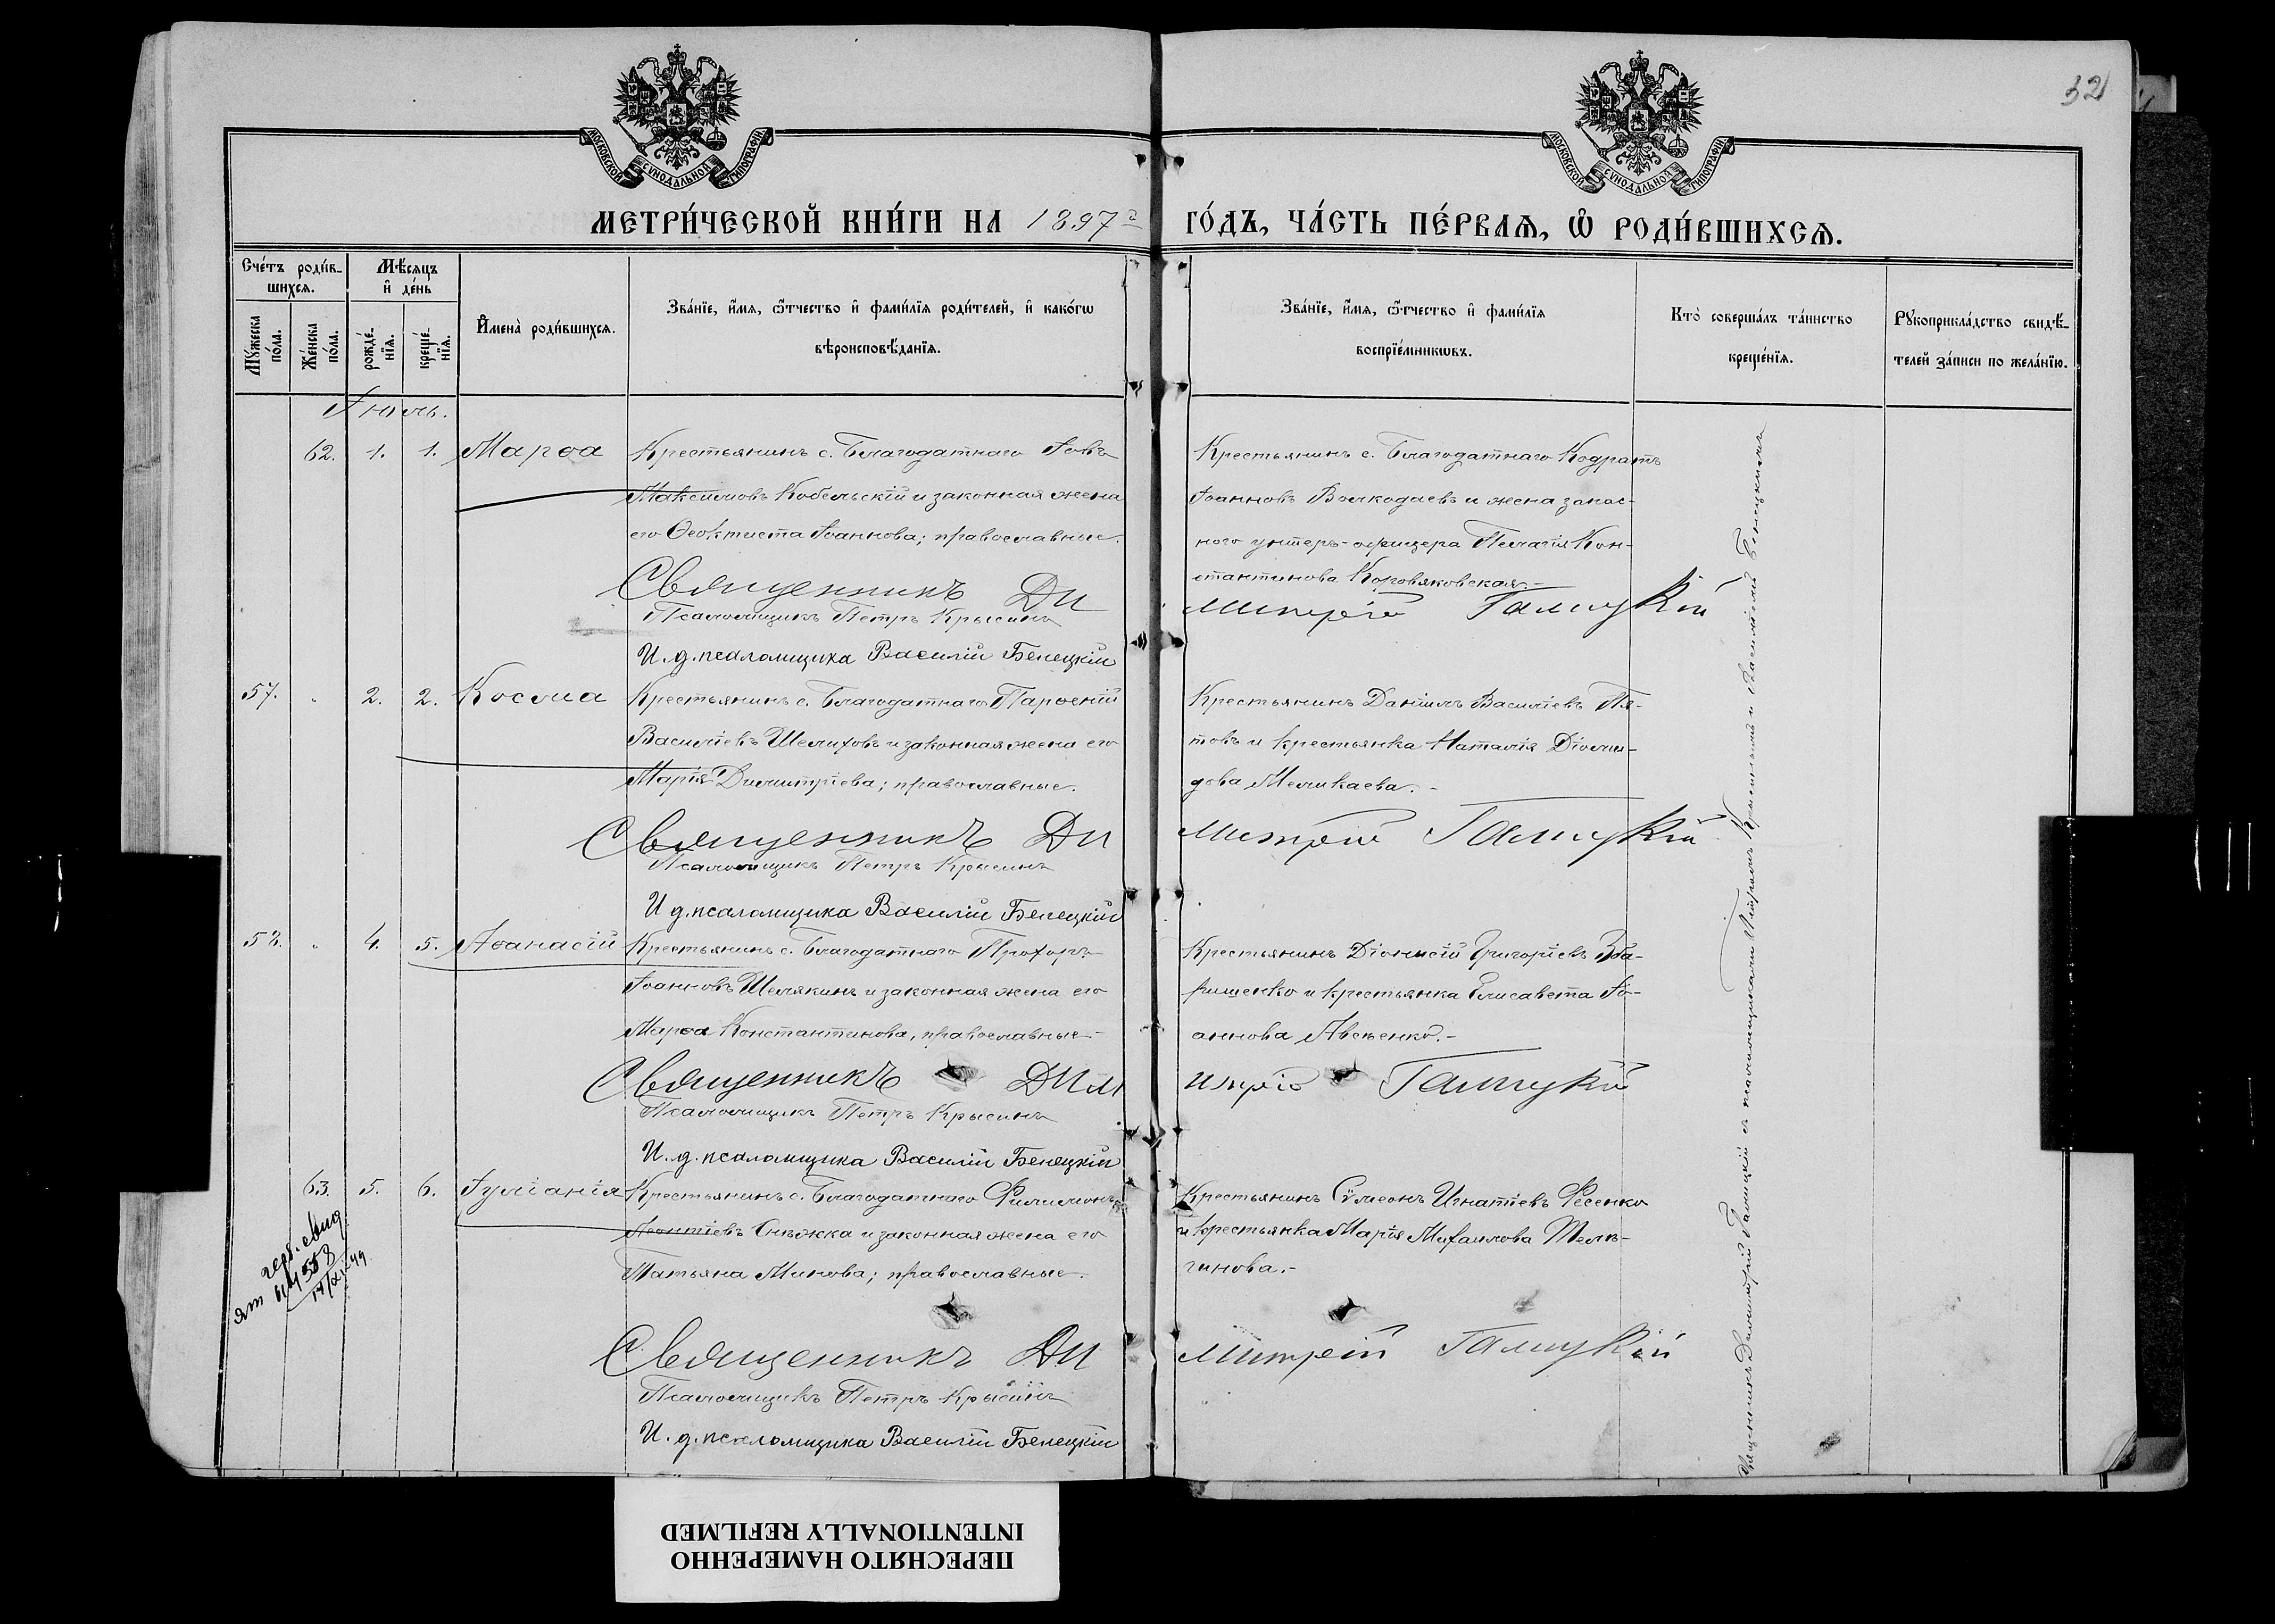 32
МОСКОВСКОЙ СѴНОДАЛЬНОЙ ТИПОГРАФІИ
МОСКОВСКОЙ СѴНОДАЛЬНОЙ ТИПОГРАФІИ
МЕТРИ́ЧЕСКОЙ КНИ́ГИ НА 1897 г ГО́ДЪ, ЧА́СТЬ ПЕ́РВАѦ, Ѡ҆ РОДИ́ВШИХСѦ.
Сче́тъ роди́в-
шихсѧ.
Мѣ́сѧцъ
и҆ де́нь
Мꙋжеска по́ла.
Же́нска по́ла.
рожде́-
нїѧ.
креще́-
нїѧ.
И҆мена̀ роди́вшихсѧ.
Зва́нїе, и҆́мѧ, ѻ҆́тчество и҆ фами́лїѧ роди́телей, и҆ како́гѡ
вѣроисповѣ́данїѧ.
Зва́нїе, и҆́мѧ, ѻ҆́тчество и҆ фами́лїѧ
воспрїе́мникѡвъ.
Кто̀ соверша́лъ та́инство
креще́нїѧ.
Рꙋкоприкла́дство свидѣ́-
телей за́писи по жела́нїю.
Іюль.
62. 1. 1. Марѳа Крестьянинъ с. Благодатнаго Іовъ
Максимовъ Кобельскій и законная жена
его Ѳеоктиста Іоаннова; православные.
Крестьянинъ с. Благодатнаго Кодратъ
Іоанновъ Волкодаевъ и жена запас-
ного унтеръ-офицера Пелагія Кон-
стантинова Коровяковская.-
Священникъ Димитрій Галицкій
Псаломщикъ Петръ Крысинъ
И. д. псаломщика Василій Бенецкій
57. " 2. 2. Косма Крестьянинъ с. Благодатнаго Парѳеній
Василіевъ Шелиховъ и законная жена его
Марія Димитріева; православные.
Крестьянинъ Даніилъ Василіевъ Пя-
товъ и крестьянка Наталія Діоми-
дова Меликаева.-
Священникъ Димитрій Галицкій
Псаломщикъ Петръ Крысинъ
И д. псаломщика Василій Бенецкій
58. " 4. 5. Аѳанасій Крестьянинъ с. Благодатнаго Прохоръ
Іоанновъ Шелякинъ и законная жена его
Марѳа Константинова, православные-
Крестьянинъ Діонисій Григоріевъ Зба-
рищенко и крестьянка Елисавета Іо-
аннова Авсѣенко.-
Священникъ Димитрій Галицкій
Псаломщикъ Петръ Крысинъ
И. д. псаломщика Василій Бенецкій
63. 5. 6. Іуліанія Крестьянинъ с. Благодатнаго Филимонъ
Леонтіевъ Снѣжка и законная жена его
Татьяна Минова; православные.
Крестьянинъ Сѵмеонъ Игнатіевъ Фесенко
и крестьянка Марія Михаилова Телѣ-
гинова.-
Священникъ Димитрій Галицкій
Псаломщикъ Петръ Крысинъ
И. д. псаломщика Василій Бенецкій
Священникъ Димитрій Галицкій съ псаломщиками Петромъ Крысинымъ и Василіемъ Бенецкимъ
ПЕРЕСНЯТО НАМЕРЕННО
INTENTIONALLY REFILMED